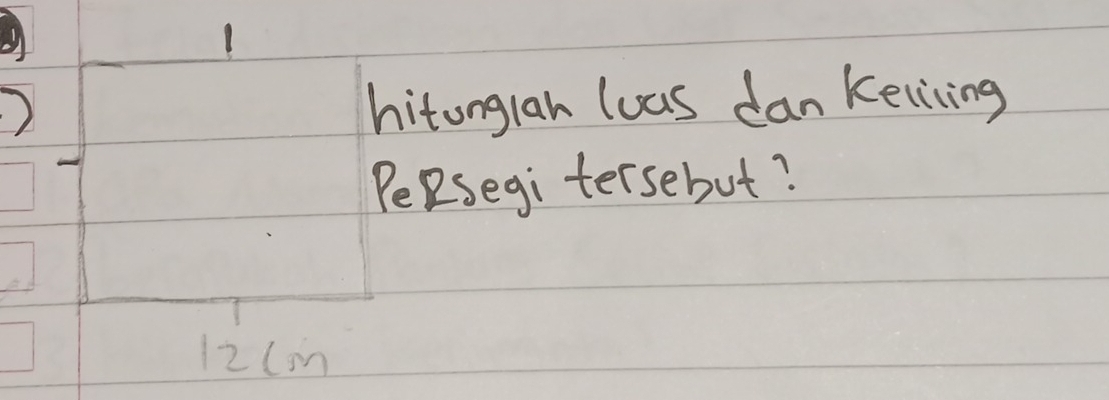 hitunglah luas dan Keliling
Persegi tersebut?
12 cm